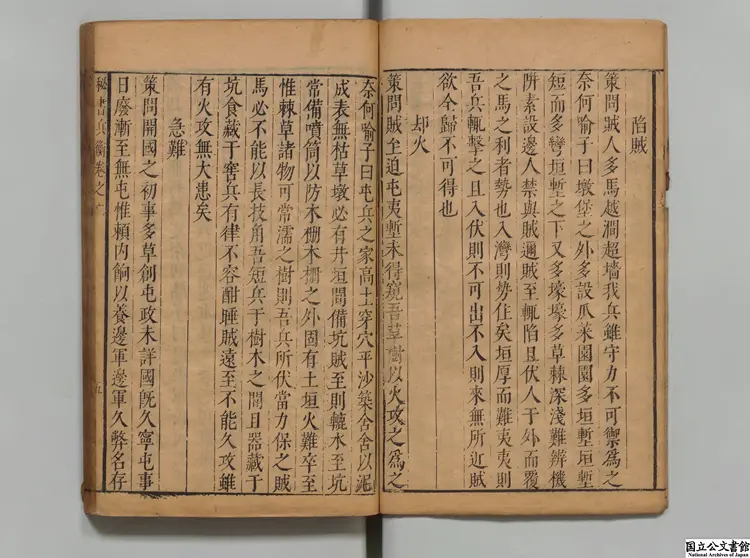 陷賊
策問賊人多馬越澗超墻我兵雖守力不可禦爲之
奈何喻子曰墩堡之外多設爪菜園園多垣塹垣塹
短而多彎垣塹之下又多壕壕多草棘深淺難辨機
阱素設邊人禁與賊邇賊至輒陷且伏人于外而覆
之馬之利者勢也入灣則勢住矣垣厚而難夷夷則
吾兵輒擊之且入伏則不可出不入則來無所近賊
欲全歸不可得也
却火
策問賊至迫屯夷塹未得窺吾草樹以火攻之爲之
奈何喻子曰屯兵之家高土穿穴平沙築舍舍以泥
成表無枯草墩必有井垣間備坑賊至則轆水至坑
常備噴筒以防木栅木栅之外固有土垣火難卒至
惟棘草諸物可常濡之樹則吾兵所伏當力保之賊
馬必不能以長技角吾短兵于樹木之間且器藏于
坑食藏于窖兵有律不容酣睡賊遠至不能久攻雖
有火攻無大患矣
急難
策問開國之初事多草創屯政未詳國旣久寧屯事
日廢漸至無屯惟賴内餉以養邊軍邊軍久弊名存
秘書兵衡卷之
五
国立公文書館
National Archives of Japan